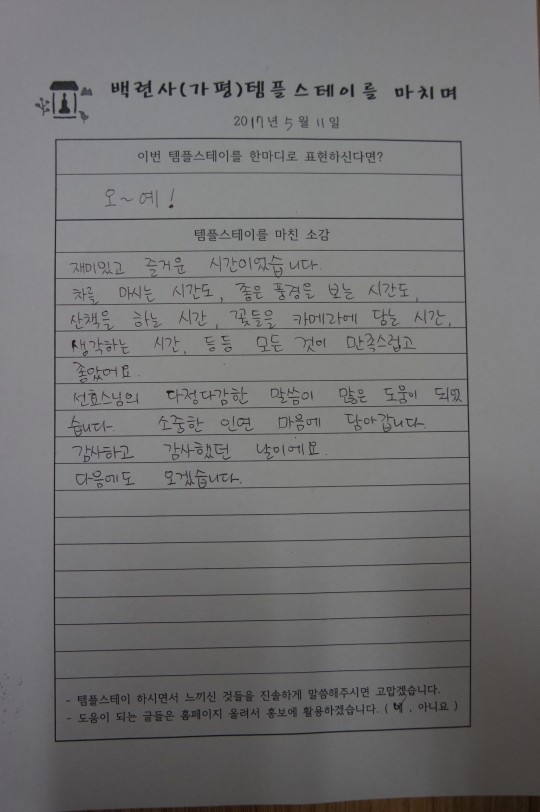 백련사(가평)템플스테이를 마치며
2017년 5월 11일
이번 템플스테이를 한마디로 표현하신다면?
오~예!
템플스테이를 마친 소감
재미있고 즐거운 시간이었습니다.
차를 마시는 시간도, 좋은 풍경을 보는 시간도,
산책을 하는 시간, 꽃들을 카메라에 담는 시간,
생각하는 시간, 등등 모든 것이 만족스럽고
좋았어요.
선효스님의 다정다감한 말씀이 많은 도움이 되었
습니다. 소중한 인연 마음에 담아갑니다.
감사하고 감사했던 날이에요.
다음에도 오겠습니다.
- 템플스테이 하시면서 느끼신 것들을 진솔하게 말씀해주시면 고맙겠습니다.
- 도움이 되는 글들은 홈페이지 올려서 홍보에 활용하겠습니다. ( 네 , 아니요 )